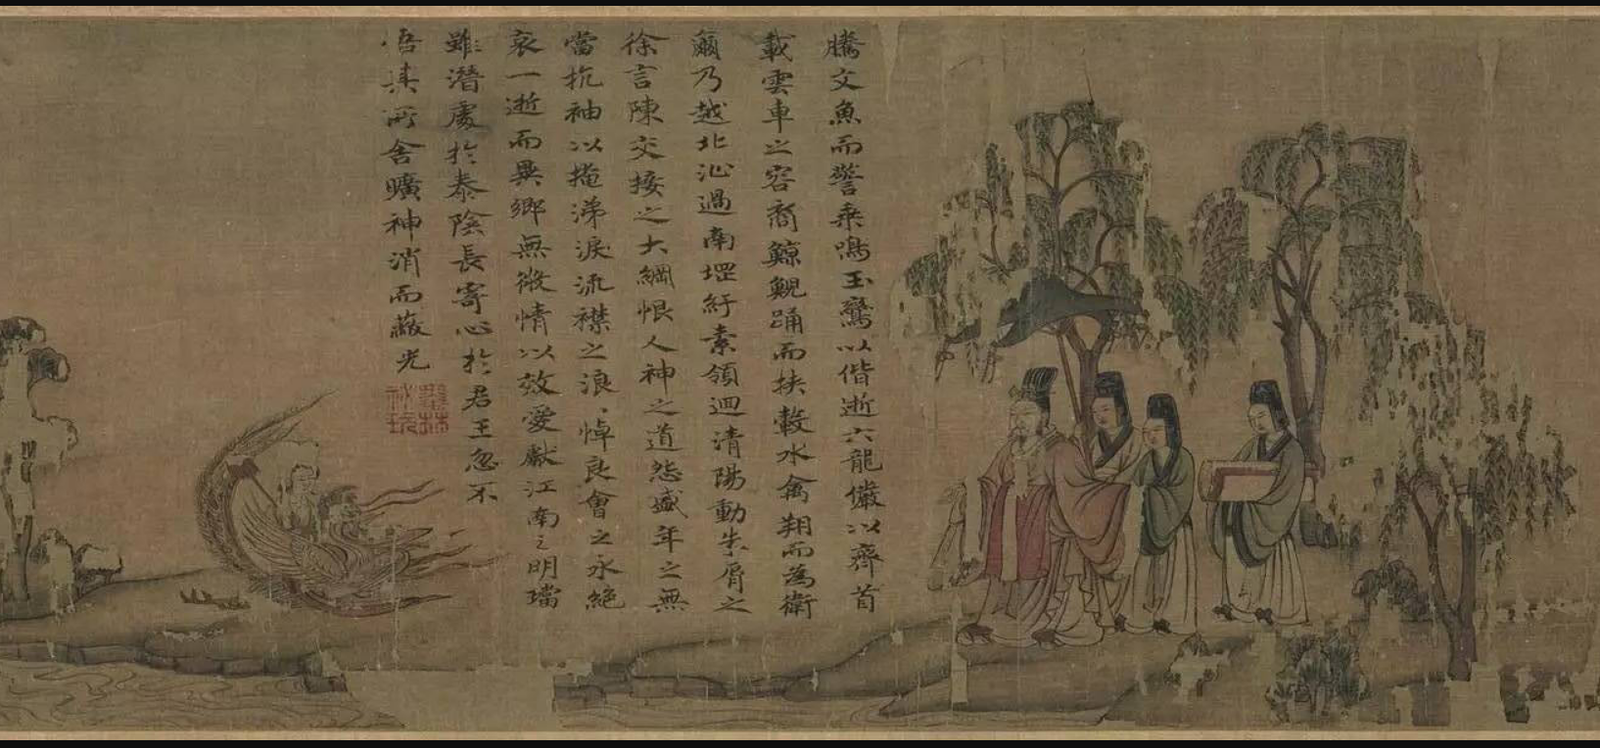 騰文魚而警乗鳴玉鸞以偕逝六龍儼以齊首
載雲車之容裔鯨鯢踊而挾轂水禽翔而為衛
爾乃越北沚過南堽紆素領迴清陽動朱脣之
徐言陳交接之大綱恨人神之道怨盛年之無
當抗袖以掩涕淚流襟之浪〻悼良會之永絶
哀一逝而異鄉無微情以效愛獻江南之明璫
雖潛處於泰陰長寄心於君王忽不
悟其所舍曠神消而蔽光